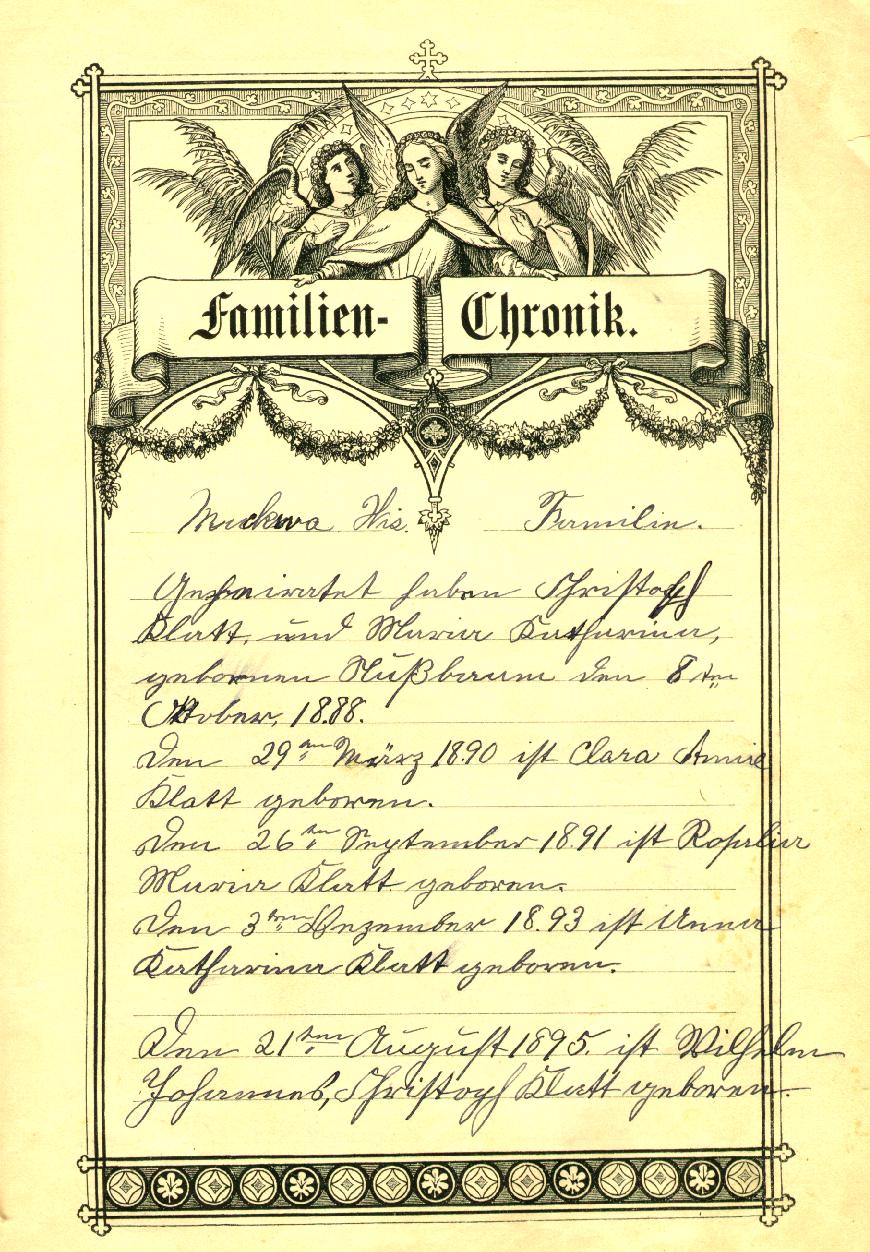 Familien- Chronik.
Meckwa Wis. Familie.
Geheiratet haben Christoph
Klatt, und Maria Katharina,
gebornen Nußbaum den 8ten
Oktober, 1888.
Den 29ten März 1890 ist Clara Annie
Klatt geboren.
Den 26ten September 1891 ist Rosalia
Maria Klatt geboren.
Den 3ten Dezember 1893 ist Anna
Katharina Klatt geboren.
Den 21ten August 1895. ist Wilhelm
Johannes, Christoph Klatt geboren.